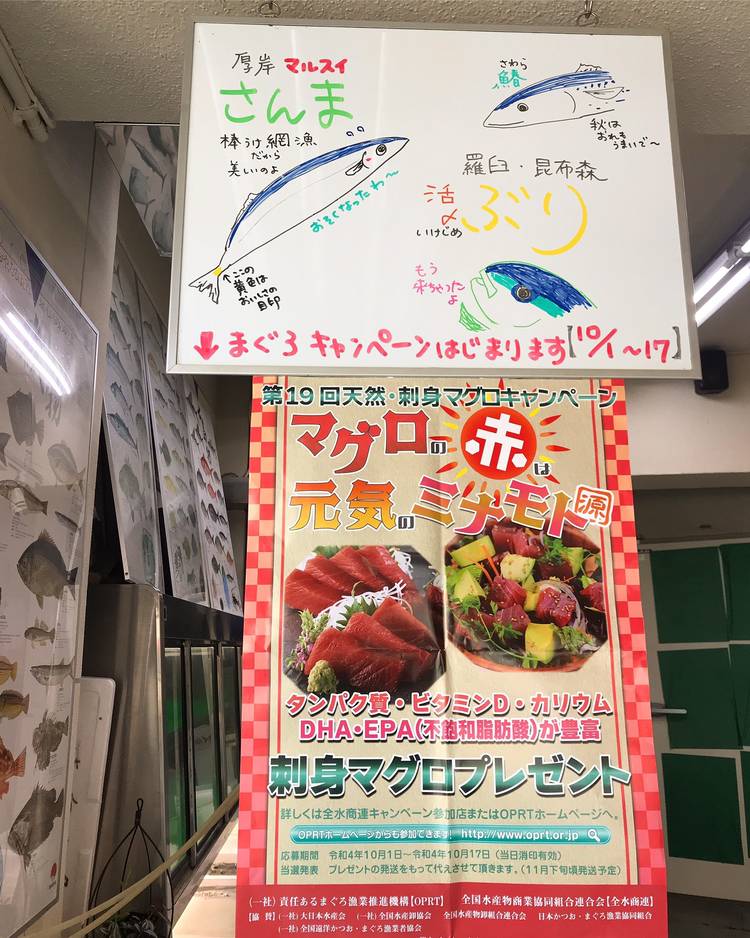 厚岸 マルスイ
さんま
棒うけ網漁
だから
美しいのよ
おそくなったわ〜
↑ここの
黄色は
おいしさの
目印
さわら
鰆
秋は
おれも
うまいで〜
羅臼・昆布森
活〆
いけじめ
ぶり
もう
来ちゃった
よ
↓まぐろ キャンペーンはじまります【10/1〜17】
第19回天然・刺身マグロキャンペーン
マグロの赤は
元気のミナモト源
タンパク質・ビタミンD・カリウム
DHA・EPA(不飽和脂肪酸)が豊富
刺身マグロプレゼント
詳しくは全水商連キャンペーン参加店またはOPRTホームページへ。
OPRTホームページからも参加できます! http://www.oprt.or.jp
応募期間 令和4年10月1日〜令和4年10月17日(当日消印有効)
当選発表 プレゼントの発送をもって代えさせて頂きます。(11月下旬頃発送予定)
(一社)責任あるまぐろ漁業推進機構【OPRT】 全国水産物商業協同組合連合会【全水商連】
【協賛】(一社)大日本水産会 (一社)全国水産卸協会 全国水産物卸組合連合会 日本かつお・まぐろ漁業協同組合
(一社)全国遠洋かつお・まぐろ漁業者協会